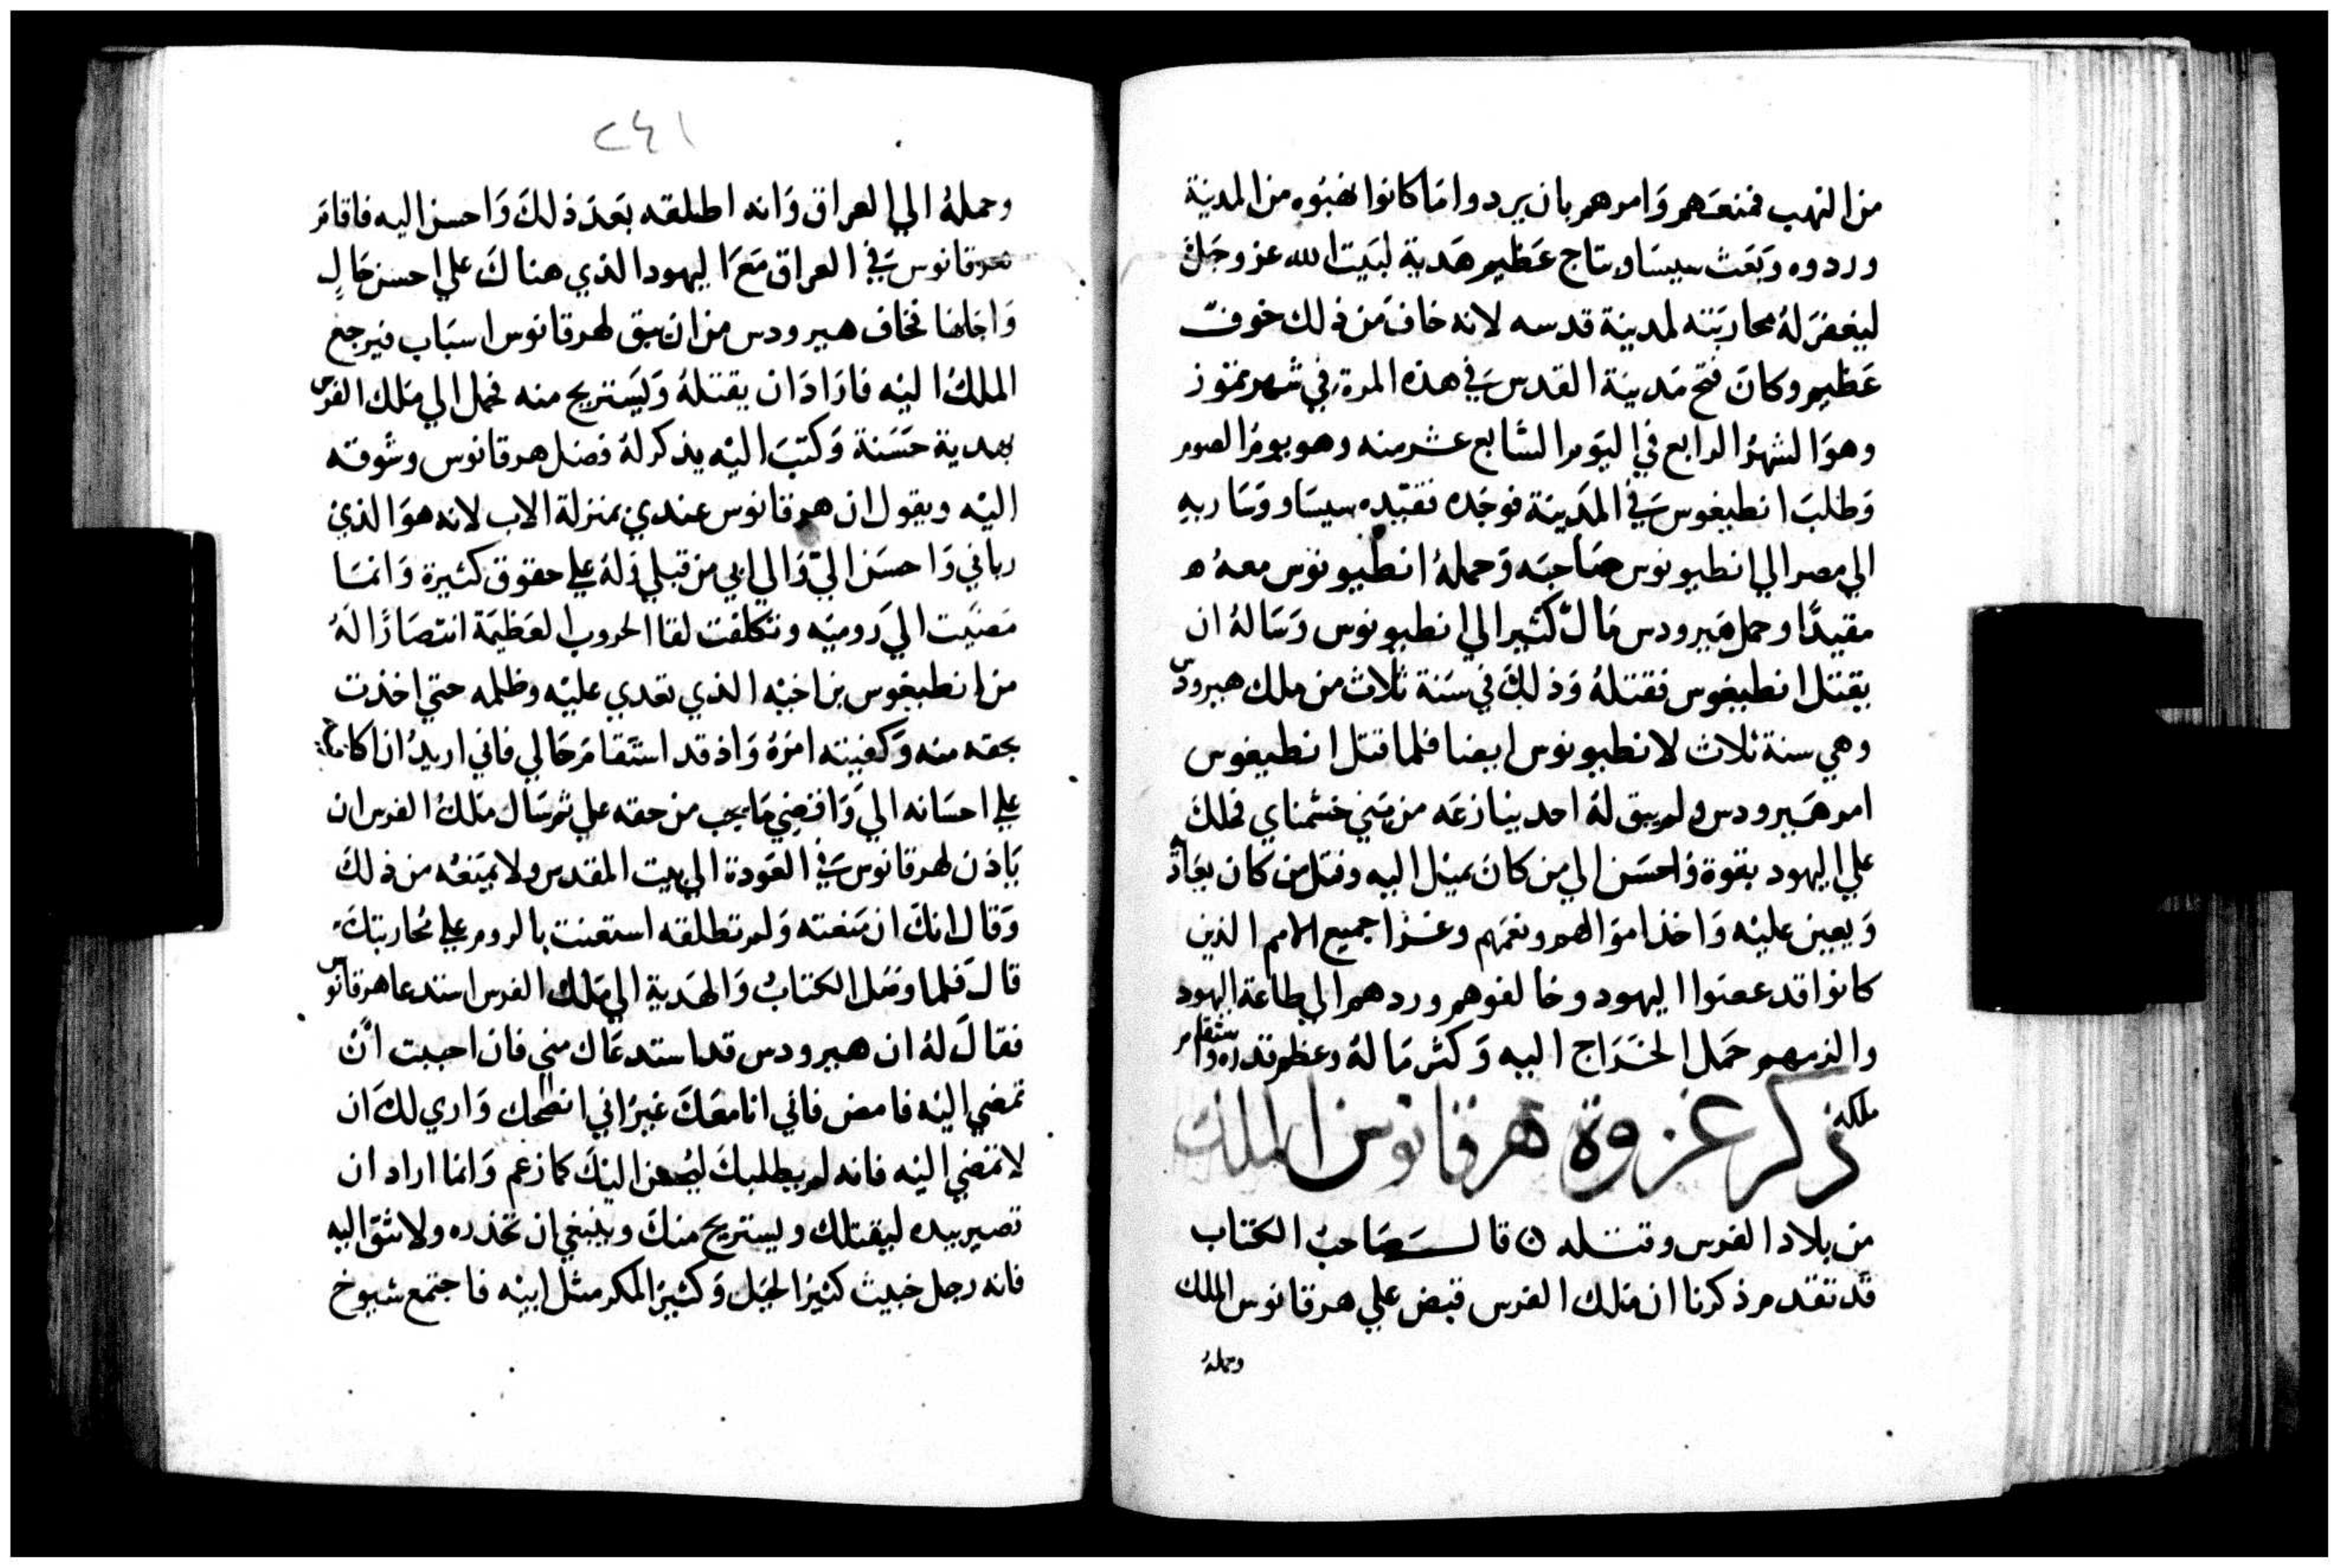 من النهب فمنعهم وامرهم بان يردوا ما كانوا نهبوه من المدينة
وردوه وبعث سيساو بتاج عظيم هدية لبيت الله عز وجل
ليغفر له محاربته لمدينة قدسه لانه خاف من ذلك خوف
عظيم وكان فتح مدينة القدس في هذه المرة في شهر تموز
وهو الشهر الرابع في اليوم السابع عشر منه وهو يوم الصوم
وطلب انطيغوس في المدينة فوجده فقيده سيساو وسار به
الي مصر الي انطيونوس صاحبه وحمله انطيونوس معه
مقيدا وحمل هيرودس مال كثير الي انطيونوس وساله ان
يقتل انطيغوس فقتله وذلك في سنة ثلاث من ملك هيرودس
وهي سنة ثلاث لانطيونوس ايضا فلما قتل انطيغوس
امر هيرودس ولم يبق له احد ينازعه من بني خشمناي فملك
علي اليهود بقوة واحسن الي من كان يميل اليه وقتل من كان يعاد
ويعين عليه واخذ اموالهم ونعمهم وغزا جميع الامم الذين
كانوا قد عصوا اليهود وخالفوهم وردهم الي طاعة اليهود
والزمهم حمل الخراج اليه وكثر ماله وعظم قدره واستقام
ملكه
ذكر غزوة هرقانوس الملك
من بلاد الفرس وقتله ٥ قال صاحب الكتاب
قد تقدم ذكرنا ان ملك الفرس قبض علي هرقانوس الملك
وحمله
٢٤١
وحمله الي العراق وانه اطلقه بعد ذلك واحسن اليه فاقام
هرقانوس في العراق مع اليهود الذي هناك علي احسن حال
واجلها فخاف هيرودس من ان يبق لهرقانوس اسباب فيرجع
الملك اليه فاراد ان يقتله ويستريح منه فحمل الي ملك الفرس
بهدية حسنة وكتب اليه يذكر له فضل هرقانوس وشوقه
اليه ويقول ان هرقانوس عندي بمنزلة الاب لانه هو الذي
رباني واحسن الي والي ابي من قبلي وله علي حقوق كثيرة وانما
مضيت الي روميه وتكلفت لقا الحروب العظيمة انتصارا له
من انطيغوس بن اخيه الذي تعدي عليه وظلمه حتي اخذت
بحقه منه وكفيته امره واذ قد استقام حالي فاني اريد ان اكافيه
علي احسانه الي واقضي ما يجب من حقه علي ثم سال ملك الفرس ان
ياذن لهرقانوس في العودة الي بيت المقدس ولا يمنعه من ذلك
وقال انك ان منعته ولم تطلقه استعنت بالروم علي محاربتك
قال فلما وصل الكتاب والهدية الي ملك الفرس استدعا هرقانوس
فقال له ان هيرودس قد استدعاك مني فان احببت ان
تمضي اليه فامض فاني انا معك غير اني انصحك واري لك ان
لا تمضي اليه فانه لم يطلبك ليحسن اليك كما زعم وانما اراد ان
تصير بيده ليقتلك ويستريح منك وينبغي ان تحذره ولا تثق اليه
فانه رجل خبيث كثير الحيل وكثير المكر مثل ابيه فاجتمع شيوخ